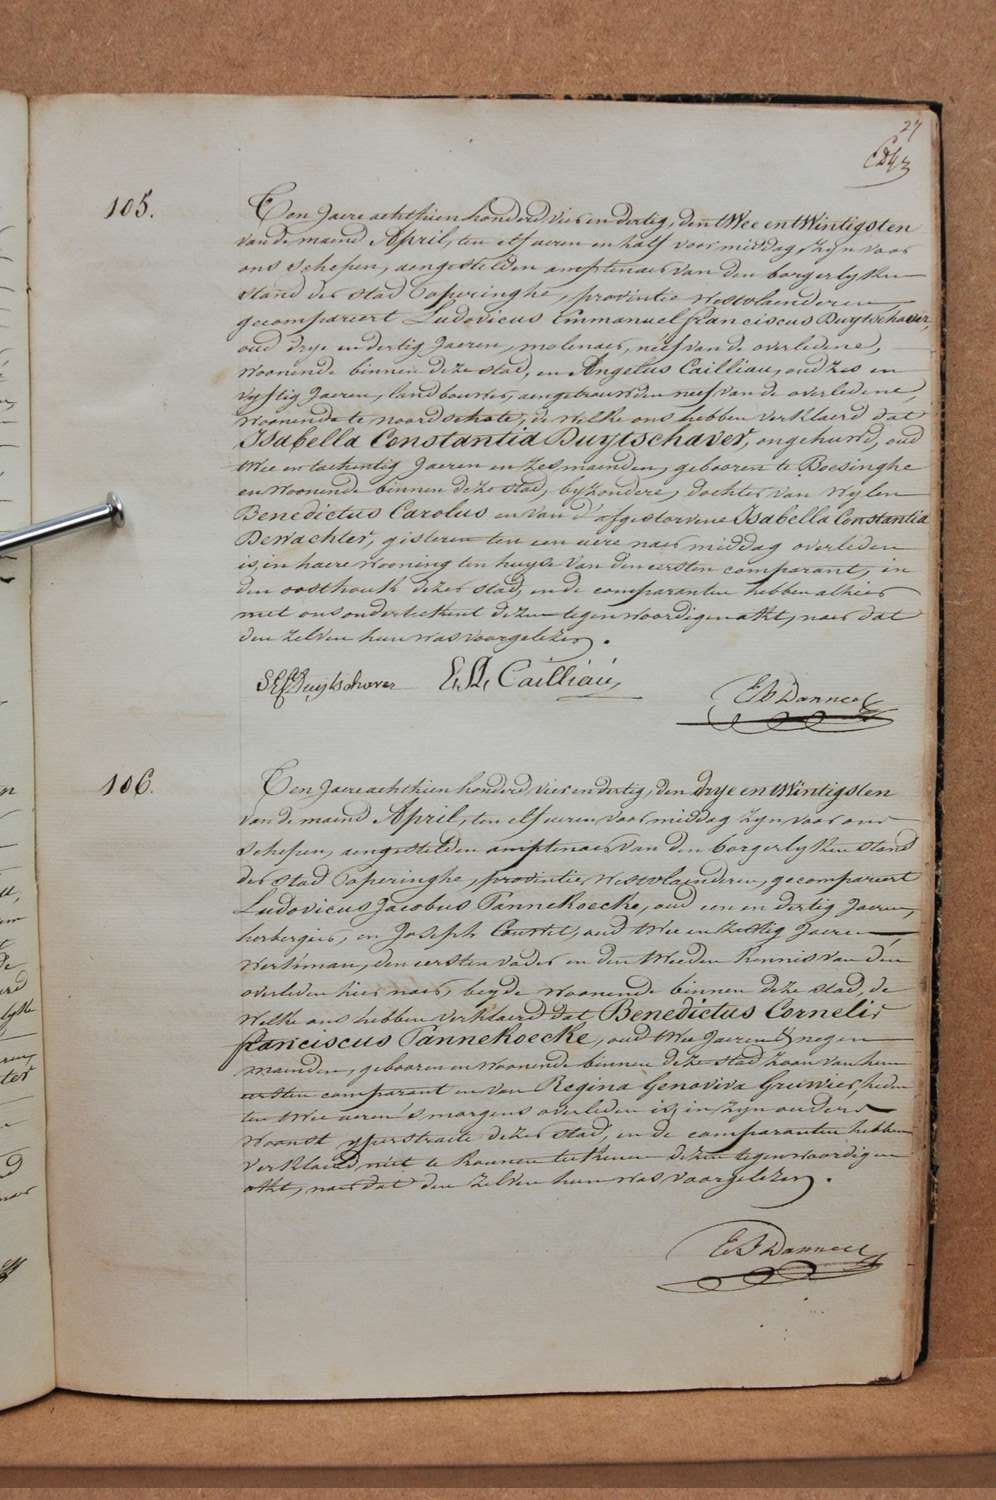 27
105.
Ten Jaere achthien honderd, vier en dertig, den twee en twintigsten
van de maend April, ten elf ueren en half voor middag, zyn voor
ons schepen, aengestelden amptenaer van den borgerlyken
stand der stad Poperinghe, provintie Westvlaenderen
gecompareert Ludovicus Emmanuel franciscus Duytschaver,
oud drye en dertig Jaeren, molenaer, neef van de overledene,
woonende binnen deze stad, en Angelus Cailliau, oud zes en
vyftig Jaeren, landbouwer, aengetrouwden neef van de overledene,
woonende te noordschote, de welke ons hebben verklaerd dat
Isabella Constantia Duytschaver, ongehuwd, oud
twee en tachentig Jaeren en zes maenden, gebooren te Boesinghe
en woonende binnen deze stad, byzondere, dochter van wylen
Benedictus Carolus en van d'afgestorvene Isabella Constantia
Dewachter, gisteren ten een uere naer middag overleden
is, in haere wooning ten huyse van den eersten comparant, in
den oosthoek dezer stad, en de comparanten hebben alhier
met ons onderteekent dezen tegenwoordigen akt, naer dat
den zelven hun was voorgelezen.
Duytschaver Cailliau
106.
Ten Jaere achthien honderd, vier en dertig, den drye en twintigsten
van de maend April, ten elf ueren voor middag zyn voor ons
schepen, aengestelden amptenaer van den borgerlyken stand
der stad Poperinghe, provintie Westvlaenderen, gecompareert
Ludovicus Jacobus Pannekoecke, oud een en dertig Jaeren,
herbergier, en Joseph Couwet, oud twee en zestig Jaeren
werkman, den eersten vader en den tweeden kennis van den
overleden hier naer, beyde woonende binnen deze stad, de
welke ons hebben verklaerd dat Benedictus Cornelis
franciscus Pannekoecke, oud twee Jaeren & negen
maenden, gebooren en woonende binnen deze stad zoon van hem
eersten comparant en van Regina Genoviva Gruwier, heden
ten twee ueren 's morgens overleden is, in zyn ouders
woonst yperstraete dezer stad, en de comparanten hebben
verklaerd niet te konnen teekenen dezen tegenwoordigen
akt, naer dat den zelven hun was voorgelezen.